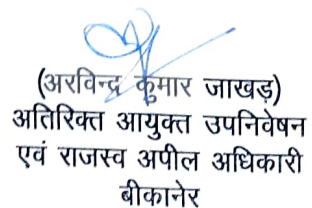 (अरविन्द्र कुमार जाखड़)
अतिरिक्त आयुक्त उपनिवेषन
एवं राजस्व अपील अधिकारी
बीकानेर